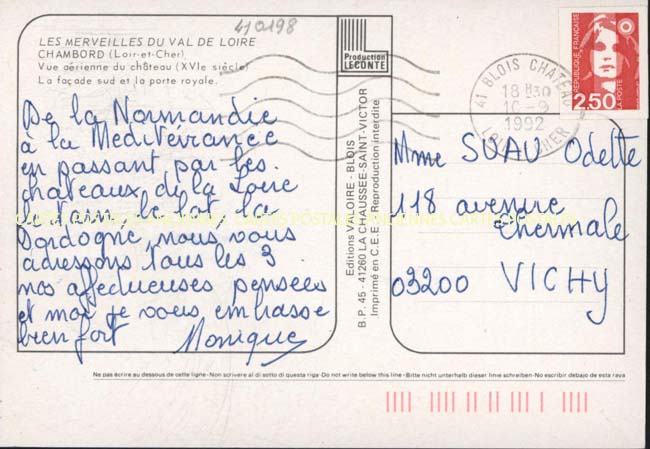 4J0198
LES MERVEILLES DU VAL DE LOIRE
CHAMBORD (Loir-et-Cher)
Vue aérienne du château (XVIe siècle)
La façade sud et la porte royale.
De la Normandie
à la Mediterranée
en passant par les
châteaux de la Loire
le Tarn, le Lot, la
Dordogne, nous vous
adressons tous les 3
nos affectueuses pensées
et moi je vous embrasse
bien fort Monique
Production
LECONTE
Editions VAL-LOIRE - BLOIS
B.P. 45 - 41260 LA CHAUSSEE-SAINT-VICTOR
Imprimé en C.E.E. - Reproduction interdite
41 BLOIS CHATEAU
18 H30
10-9
1992
LOIR CHER
REPUBLIQUE FRANÇAISE
2,50
LA POSTE
Mme SUAU Odette
118 avenue
thermale
03200 VICHY
Ne pas écrire au dessous de cette ligne - Non scrivere al di sotto di questa riga - Do not write below this line - Bitte nicht unterhalb dieser linie schreiben - No escribir debajo de esta raya